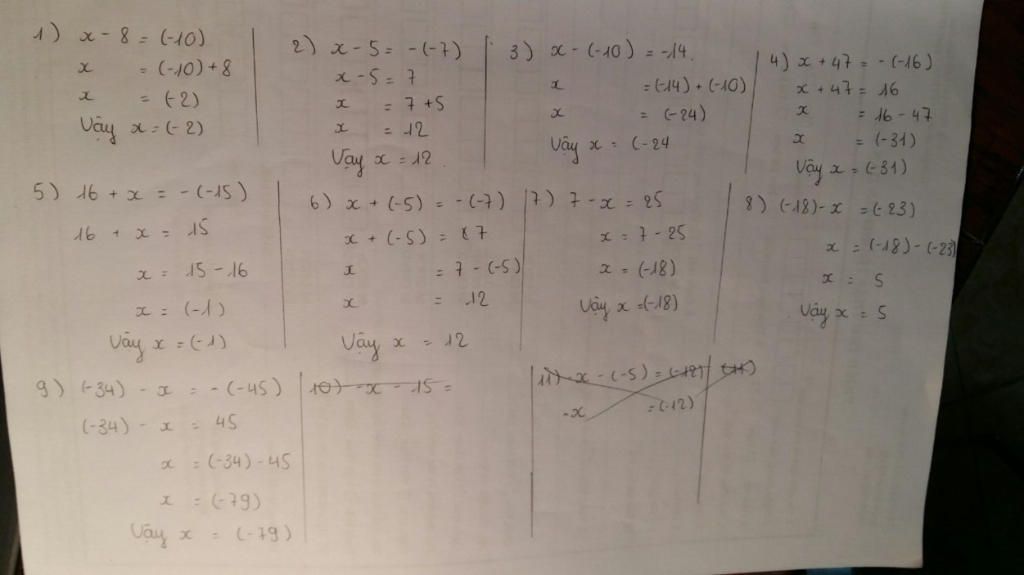 1) x - 8 = (-10)
x = (-10) + 8
x = (-2)
Vậy x = (-2)
2) x - 5 = -(-7)
x - 5 = 7
x = 7 + 5
x = 12
Vậy x = 12
3) x - (-10) = -14.
x = (-14) + (-10)
x = (-24)
Vậy x = (-24
4) x + 47 = -(-16)
x + 47 = 16
x = 16 - 47
x = (-31)
Vậy x = (-31)
5) 16 + x = -(-15)
16 + x = 15
x = 15 - 16
x = (-1)
Vậy x = (-1)
6) x + (-5) = -(-7)
x + (-5) = 7
x = 7 - (-5)
x = 12
Vậy x = 12
7) 7 - x = 25
x = 7 - 25
x = (-18)
Vậy x = (-18)
8) (-18) - x = (-23)
x = (-18) - (-23)
x = 5
Vậy x = 5
9) (-34) - x = -(-45)
(-34) - x = 45
x = (-34) - 45
x = (-79)
Vậy x = (-79)
10) -x - 15 =
11) -x - (-5) = (-12)
-x = (-12)